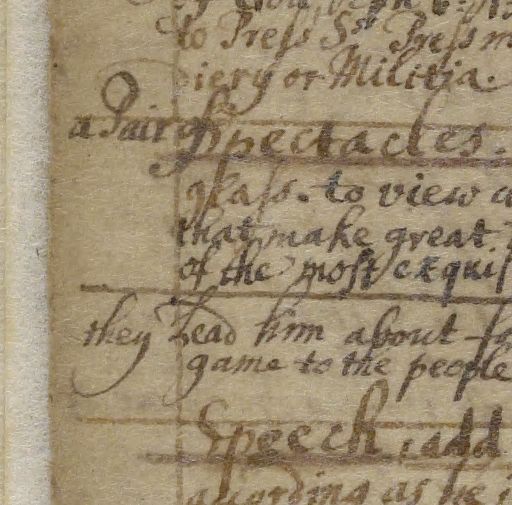 to Press S.t Press m
iery or Militia.
a Pair of Spectacles.
glass. to view a
that make great
of the most exquis
they Lead him about fo
game to the people
Speech, add
according as he i